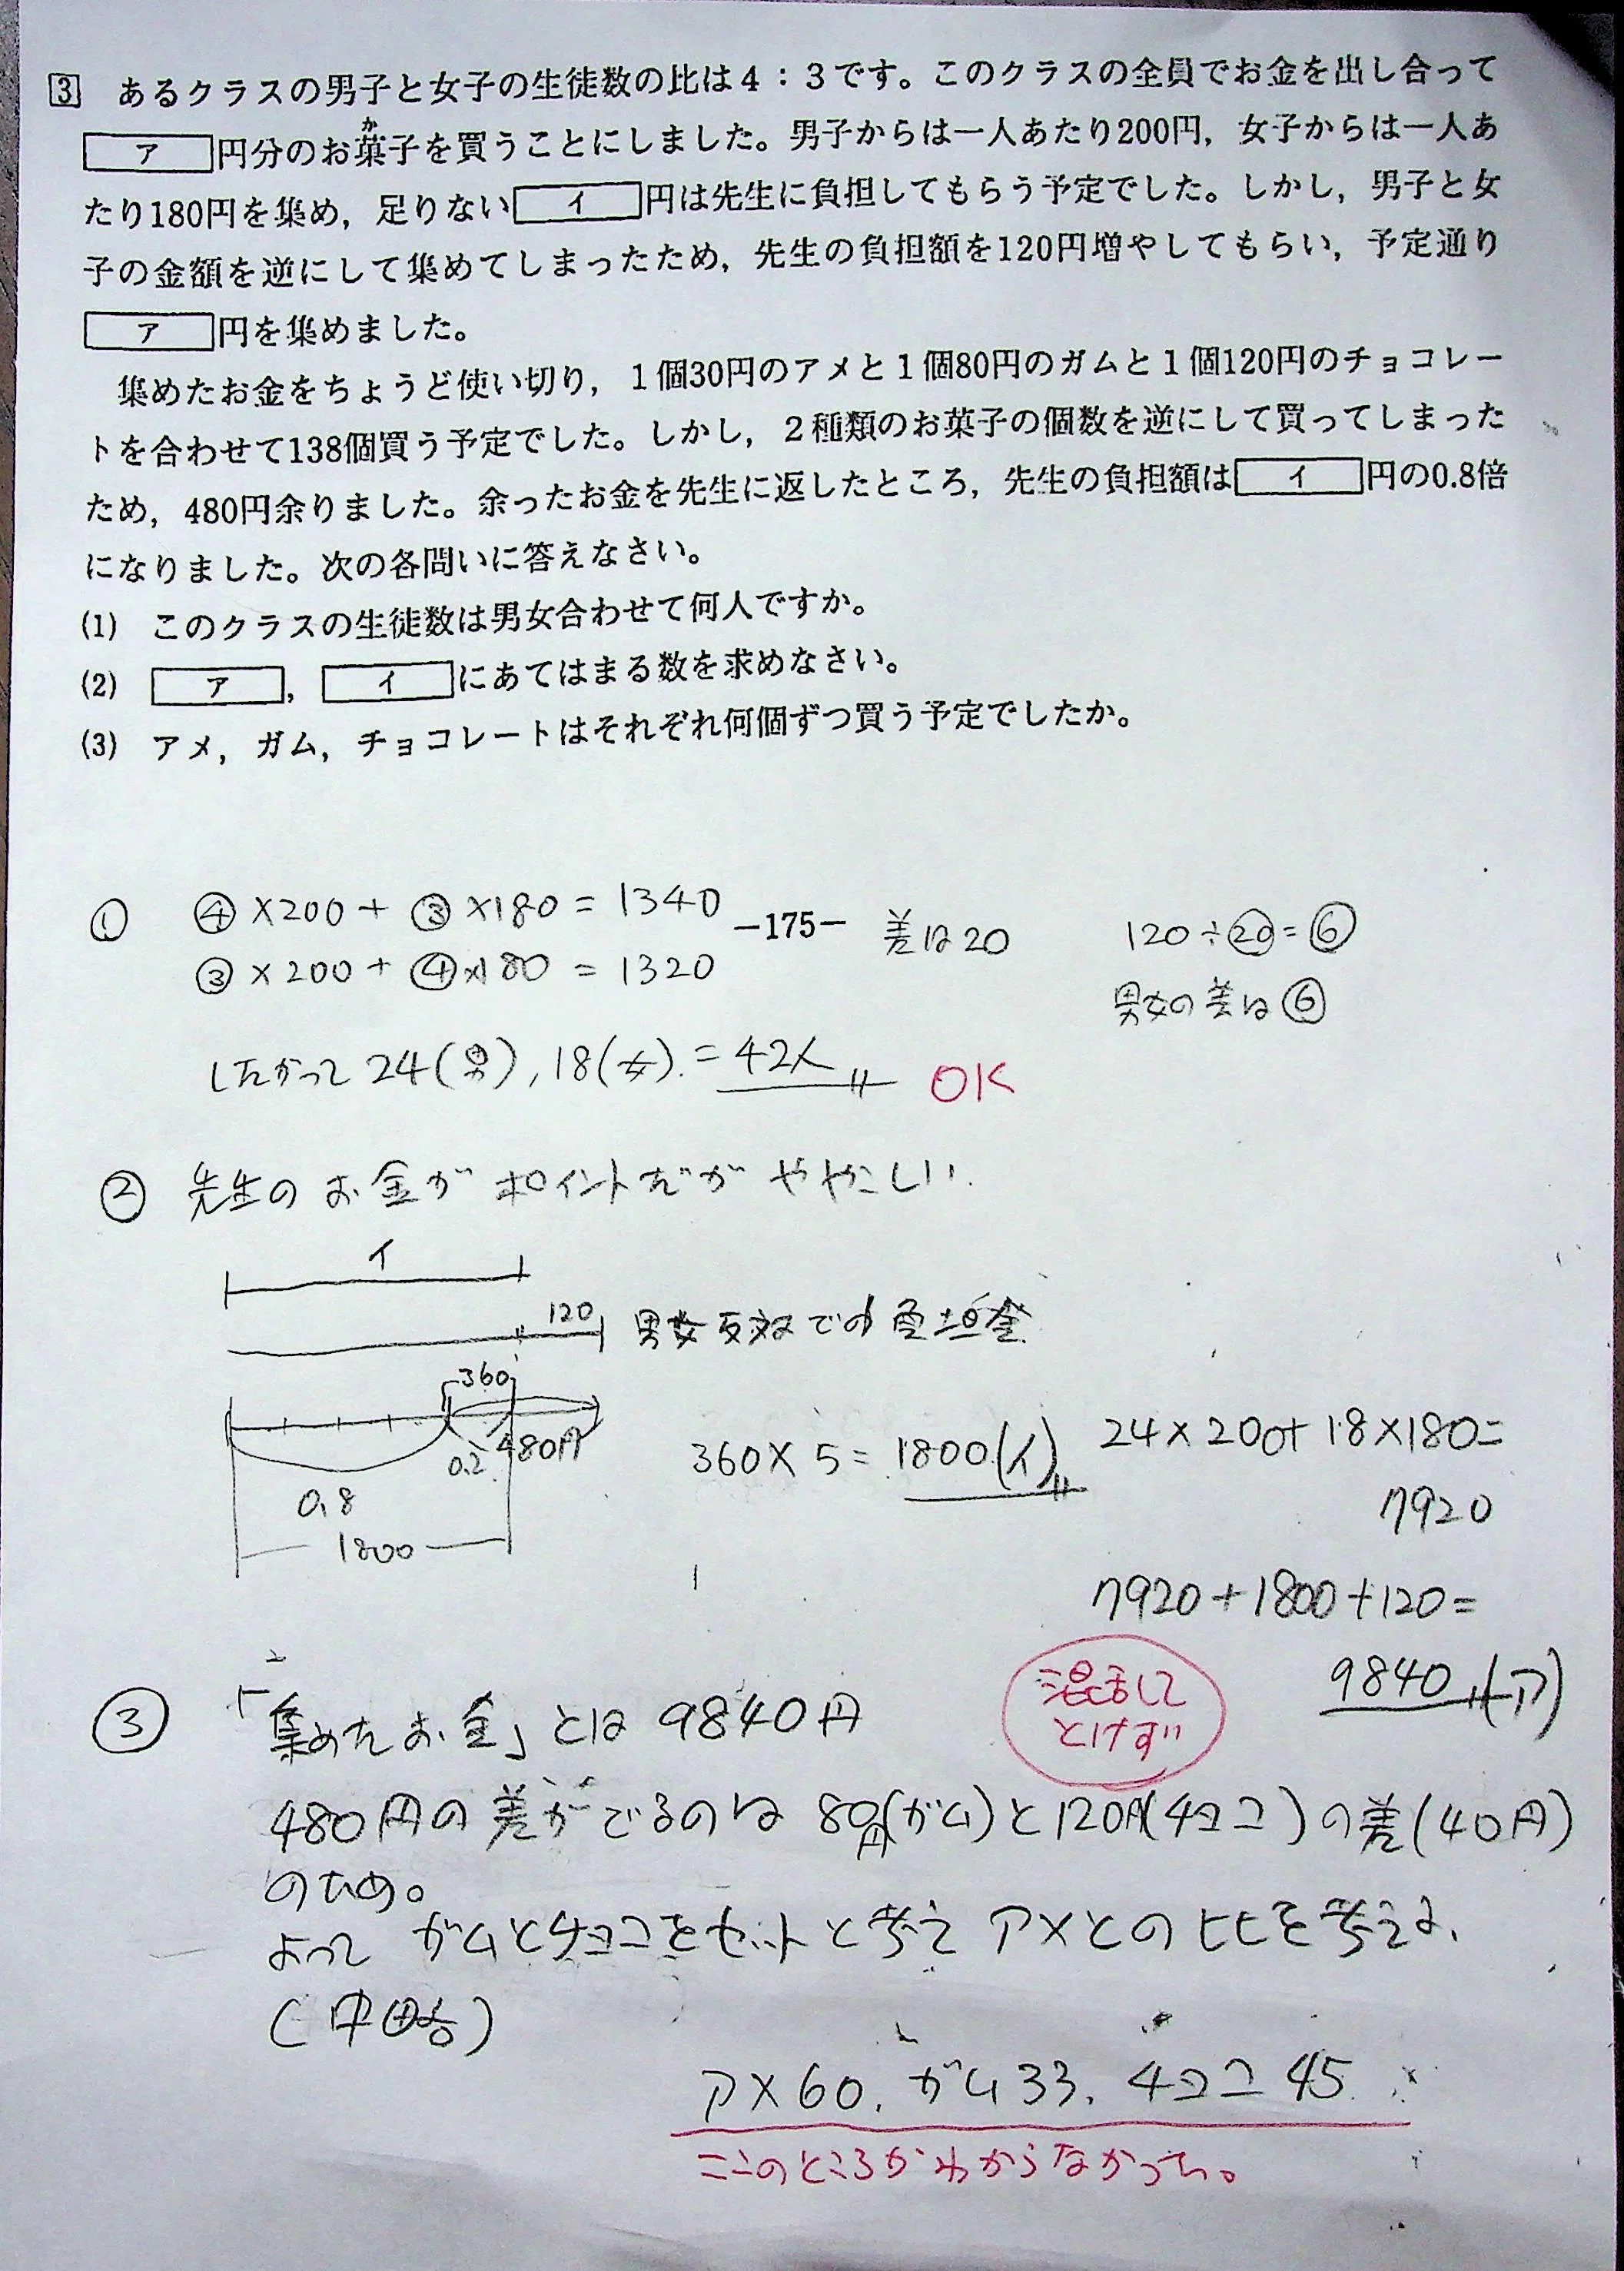 3 あるクラスの男子と女子の生徒数の比は4：3です。このクラスの全員でお金を出し合って
ア円分のお菓子を買うことにしました。男子からは一人あたり200円，女子からは一人あ
か
たり180円を集め，足りないイ円は先生に負担してもらう予定でした。しかし，男子と女
子の金額を逆にして集めてしまったため，先生の負担額を120円増やしてもらい，予定通り
ア円を集めました。
集めたお金をちょうど使い切り，1個30円のアメと1個80円のガムと1個120円のチョコレー
トを合わせて138個買う予定でした。しかし，2種類のお菓子の個数を逆にして買ってしまった
ため，480円余りました。余ったお金を先生に返したところ，先生の負担額はイ円の0.8倍
になりました。次の各問いに答えなさい。
(1) このクラスの生徒数は男女合わせて何人ですか。
(2) ア，イにあてはまる数を求めなさい。
(3) アメ，ガム，チョコレートはそれぞれ何個ずつ買う予定でしたか。
① ④×200+③×180=1340
－175－
差は20
120÷⑳=⑥
③×200+④×180=1320
男女の差は⑥
したがって 24(男),18(女).=42人
OK
② 先生のお金がポイントだがややこしい.
イ
120
男女反対での負担金
360
0.2
480円
0.8
1800
360×5=1800(イ)
24×200+18×180=
7920
7920+1800+120=
9840(ア)
混乱して
とけず
③ 「集めたお金」とは 9840円
480円の差がでるのは 80円(ガム)と120円(チョコ)の差(40円)
のため。
よって ガムとチョコをセットと考え アメとの比を考える.
(中略)
アメ60. ガム33. チョコ45.
ここのところがわからなかった。